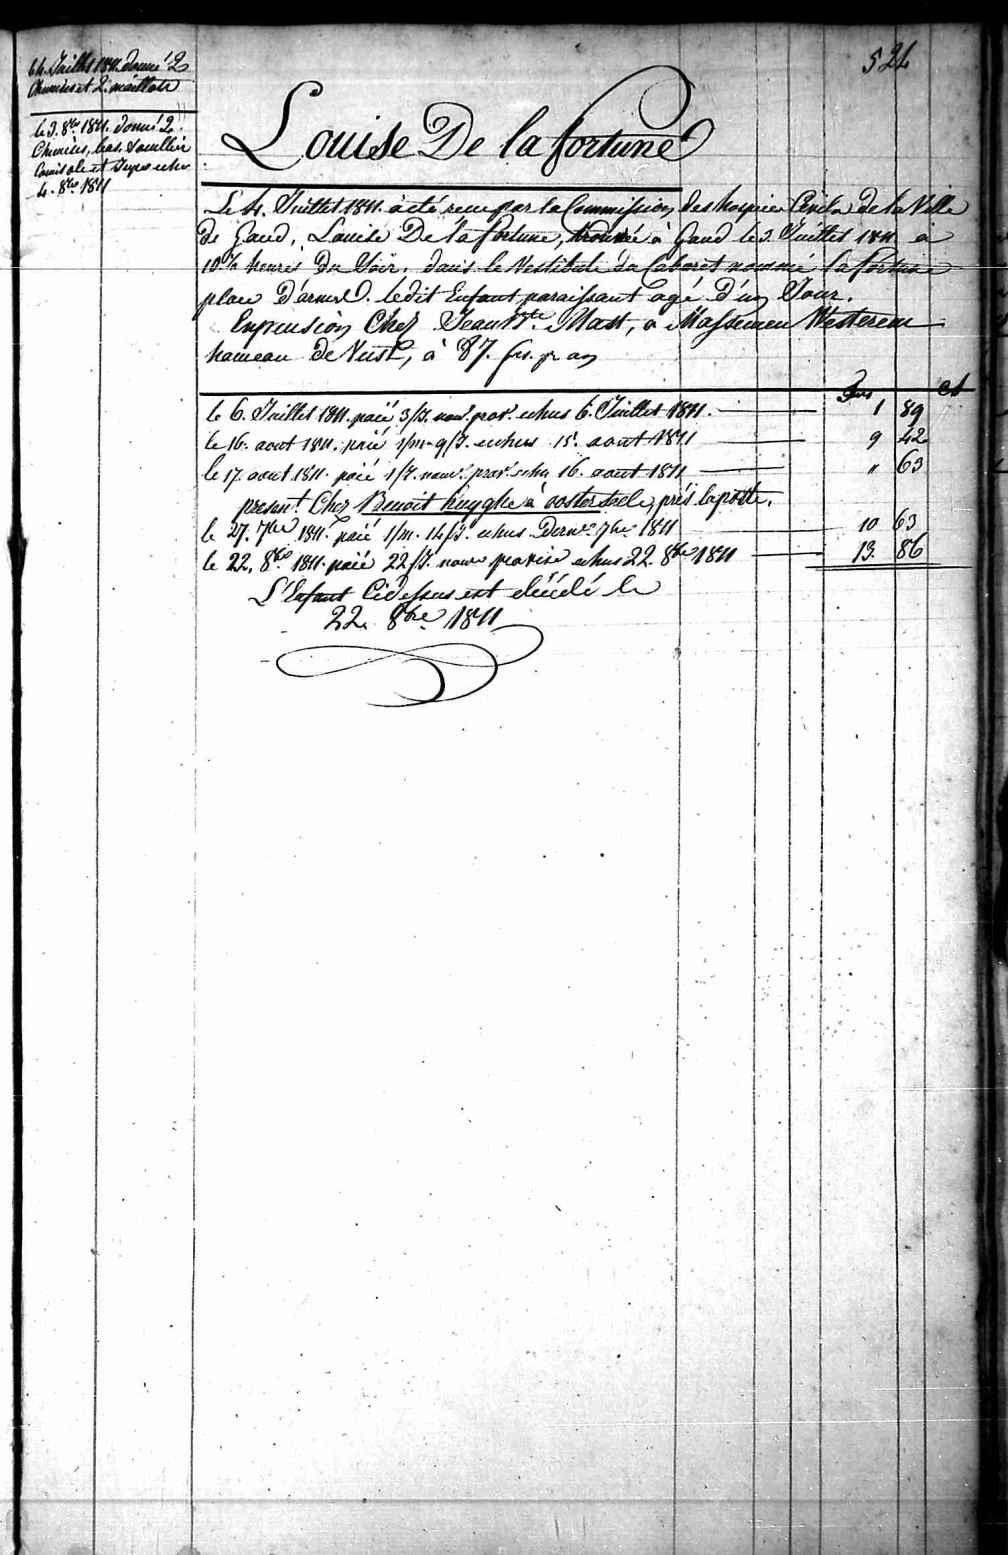 le 4. Juillet 1811. donné 2
Chemises et 2. maillots
le 3. 8bre 1811. donné 2
Chemises, bas, Souillier
Camisole et Jupes echu
4. 8bre 1811
524
Louise De la fortune
Le 4. Juillet 1811. à été reçue par la Commission des hospices Civils de la Ville
de Gand, Louise De la fortune, trouvée à Gand le 3. Juillet 1811 à
10 ½ heures du Soir, dans le Vestibule du Cabaret nommé la fortune
place D'armes. ledit Enfant paraissant agé D'un Jour.
En pension Chez Jean Bte. Mast, à Massemen Westerem
hameau de , à 87. frs. pr an
frs Ct
le 6. Juillet 1811. paié 3/J. nouv. prov. echus 6. Juillet 1811. 1 89
le 16. aout 1811. paié 1/m. 9/J. echus 15. aout 1811 9 42
le 17. aout 1811. paié 1/J. nouv. prov. echu 16. aout 1811 " 63
present. Chez Benoit huyghe à oosterzele, près la poste.
le 27. 7bre 1811. paié 1/m. 14/J. echus Dern. 7bre 1811 10 63
le 22. 8bre 1811. paié 22/J. nouv echus 22. 8bre 1811 13. 86
L'Enfant Cidessus est décédé le
22. 8bre 1811